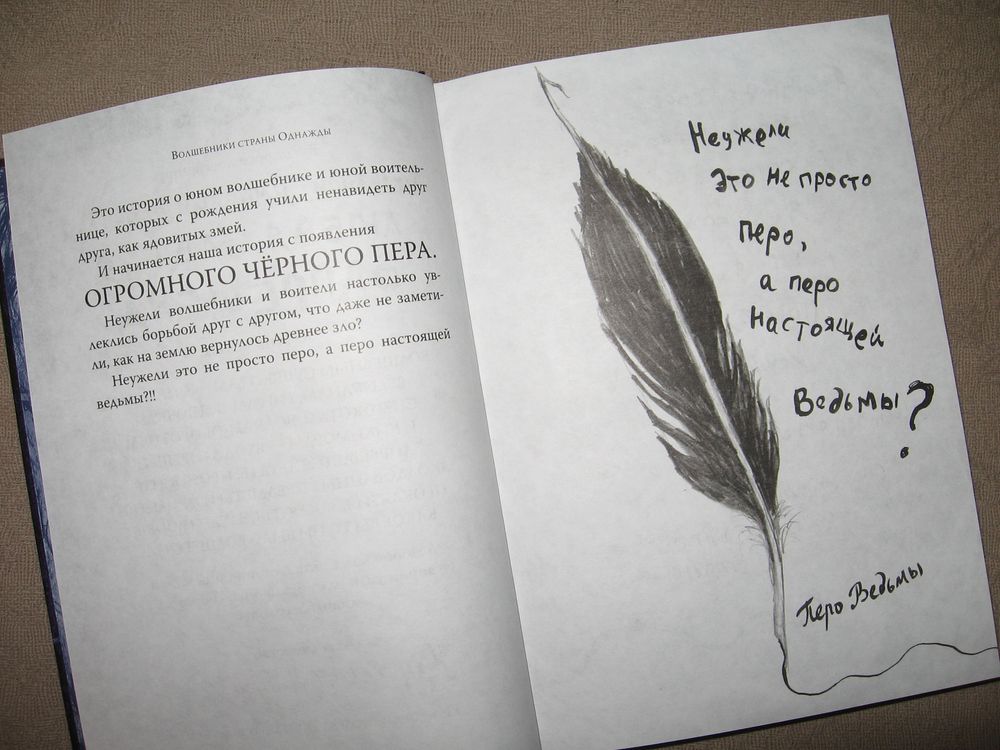 Волшебники страны Однажды
Это история о юном волшебнике и юной воитель-
нице, которых с рождения учили ненавидеть друг
друга, как ядовитых змей.
И начинается наша история с появления
ОГРОМНОГО ЧЁРНОГО ПЕРА.
Неужели волшебники и воители настолько ув-
леклись борьбой друг с другом, что даже не замети-
ли, как на землю вернулось древнее зло?
Неужели это не просто перо, а перо настоящей
ведьмы?!!
Неужели
Это не просто
перо,
а перо
настоящей
Ведьмы?
Перо Ведьмы